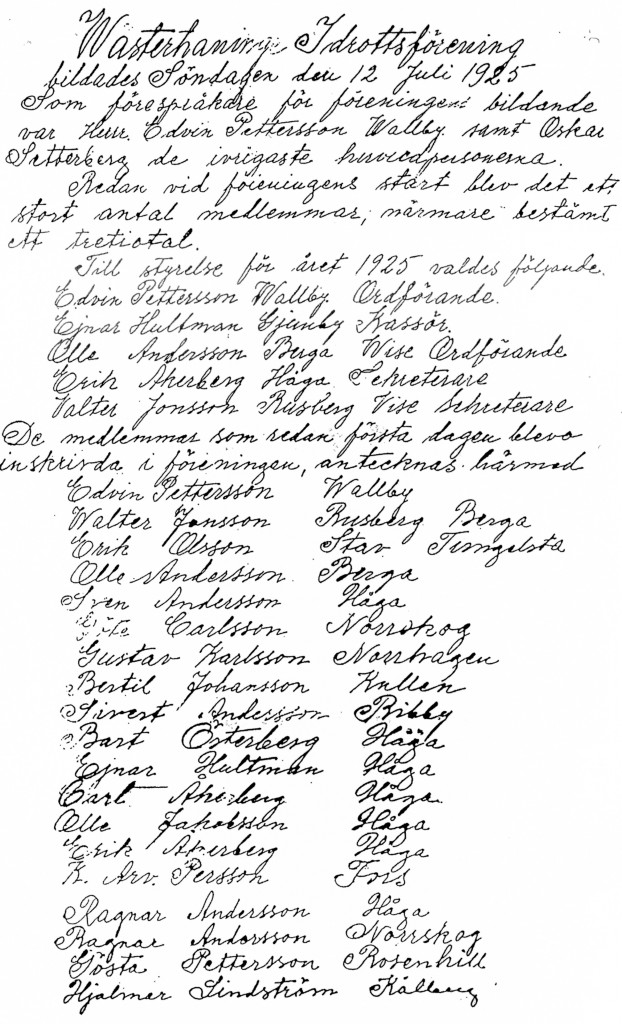 Wästerhaninge Idrottsförening
bildades Söndagen den 12 Juli 1925
Som förespråkare för föreningens bildande
var Herr. Edvin Pettersson Wallby samt Oskar
Setterberg de ivrigaste huvudpersonerna.
Redan vid föreningens start blev det ett
stort antal medlemmar, närmare bestämt
ett tretiotal.
Till styrelse för året 1925 valdes följande.
Edvin Pettersson Wallby. Ordförande.
Ejnar Hultman Gjumby Kassör.
Olle Andersson Berga Wise Ordförande
Erik Åkerberg Håga Sekreterare
Valter Jonsson Rusberg Vise Sekreterare
De medlemmar som redan första dagen blevo
inskrivda i föreningen, antecknas härmed
Edvin Pettersson Wallby
Walter Jonsson Rusberg Berga
Erik Olsson Stav Tungelsta
Olle Andersson Berga
Sven Andersson Håga
Carlsson Norrskog
Gustav Karlsson Norrhagen
Bertil Johansson Kullen
Sivert Andersson Ribby
Bart Österberg Håga
Ejnar Hultman Håga
Carl Åkerberg Håga.
Olle Jakobsson Håga
Erik Åkerberg Håga
K. Arv. Persson Fors
Ragnar Andersson Håga
Ragnar Andersson Norrskog
Gösta Pettersson Rosenhill
Hjalmar Lindström Kålberg